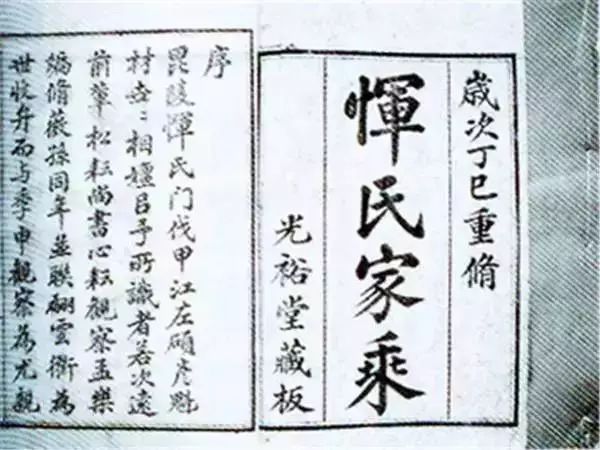 歲次丁巳重脩
惲氏家乘
光裕堂藏板
序
毘陵惲氏门伐甲江左碩彦魁
材世〻相嬗㠯予所識者若次遠
前輩松耘尚書心耘觀察孟樂
編脩薇孫同年並聯翩雲衢為
世而与季申觀察為尤親